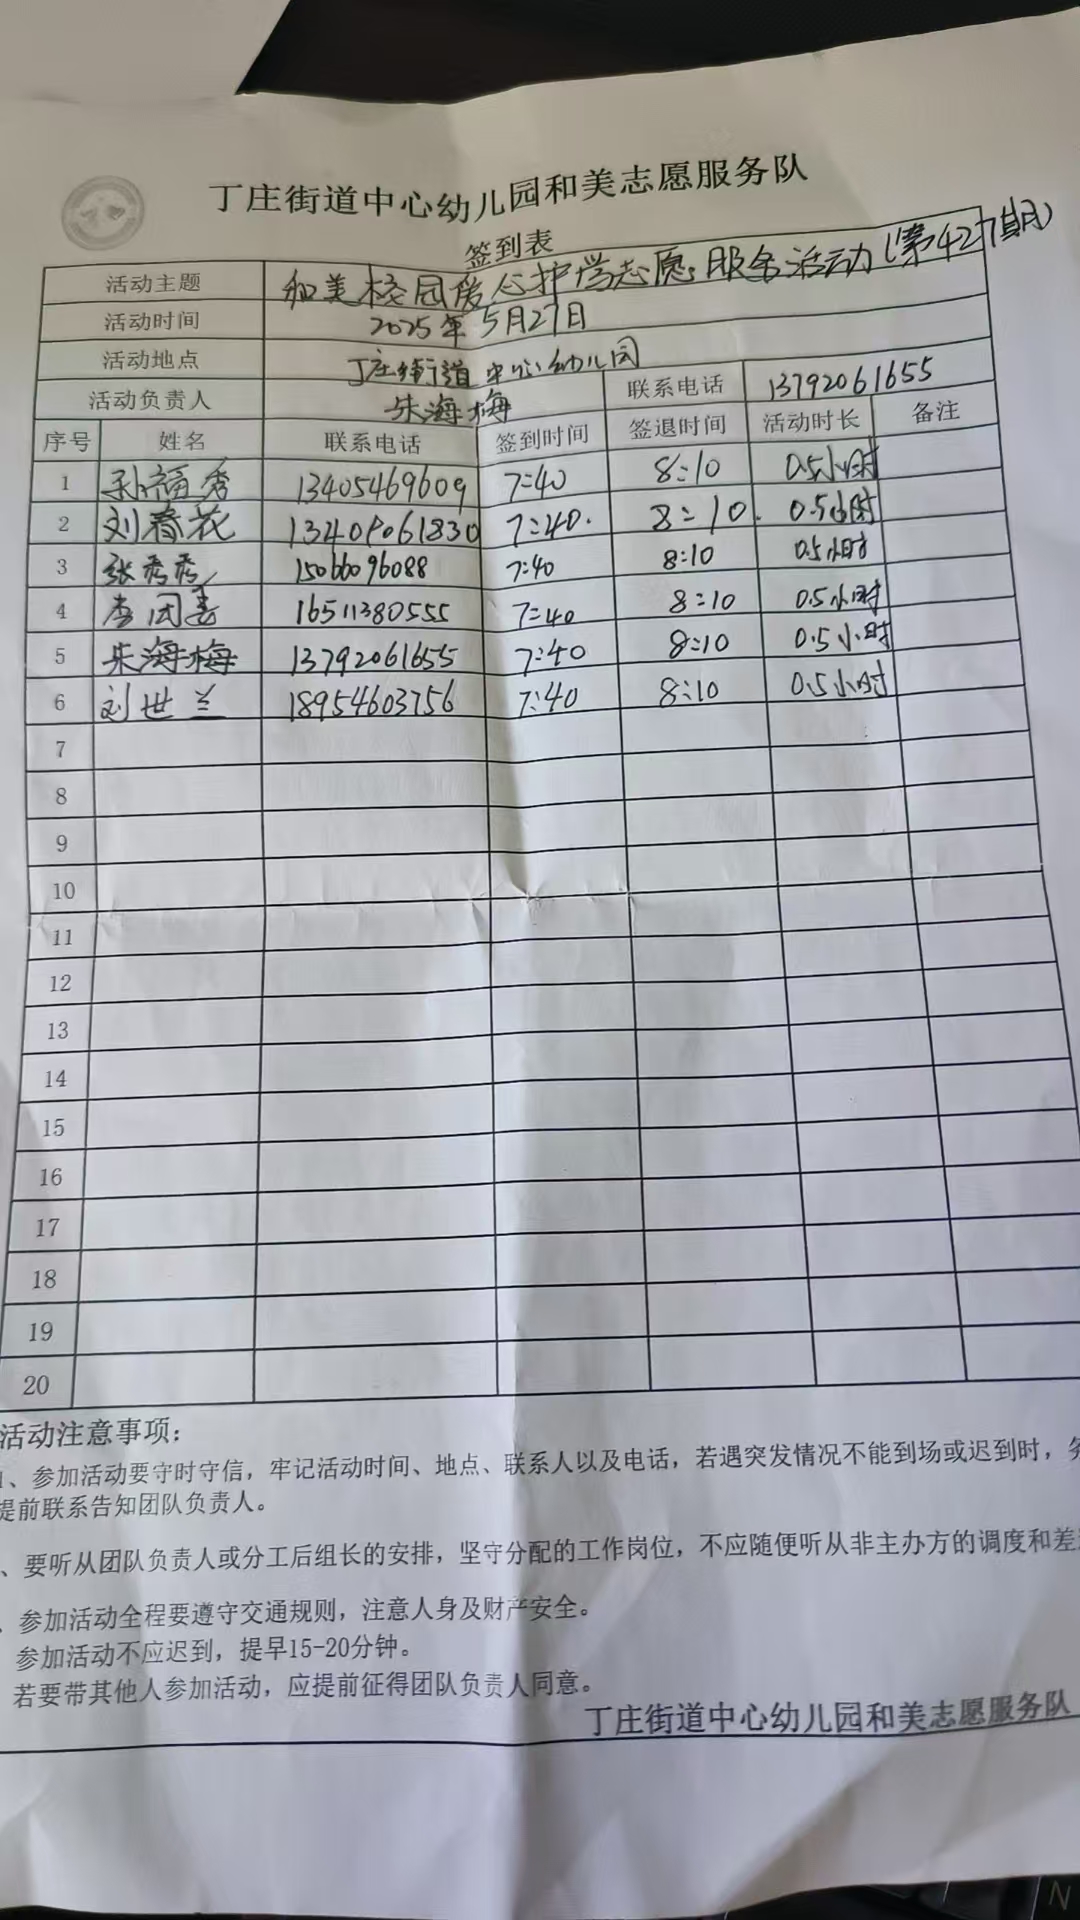 丁庄街道中心幼儿园和美志愿服务队
签到表
活动主题 和美校园爱心护学志愿服务活动(第427期)
活动时间 2025年5月27日
活动地点 丁庄街道中心幼儿园
活动负责人 朱海梅 联系电话 13792061655
序号 姓名 联系电话 签到时间 签退时间 活动时长 备注
1 孙福秀 13405469609 7:40 8:10 0.5小时
2 刘春花 7:40. 8:10. 0.5小时
3 张秀秀 15066096088 7:40 8:10 0.5小时
4 16511380555 7:40 8:10 0.5小时
5 朱海梅 13792061655 7:40 8:10 0.5小时
6 刘世兰 18954603756 7:40 8:10 0.5小时
7
8
9
10
11
12
13
14
15
16
17
18
19
20
活动注意事项:
1、参加活动要守时守信，牢记活动时间、地点、联系人以及电话，若遇突发情况不能到场或迟到时，务
提前联系告知团队负责人。
、要听从团队负责人或分工后组长的安排，坚守分配的工作岗位，不应随便听从非主办方的调度和差
、参加活动全程要遵守交通规则，注意人身及财产安全。
参加活动不应迟到，提早15-20分钟。
若要带其他人参加活动，应提前征得团队负责人同意。
丁庄街道中心幼儿园和美志愿服务队
N